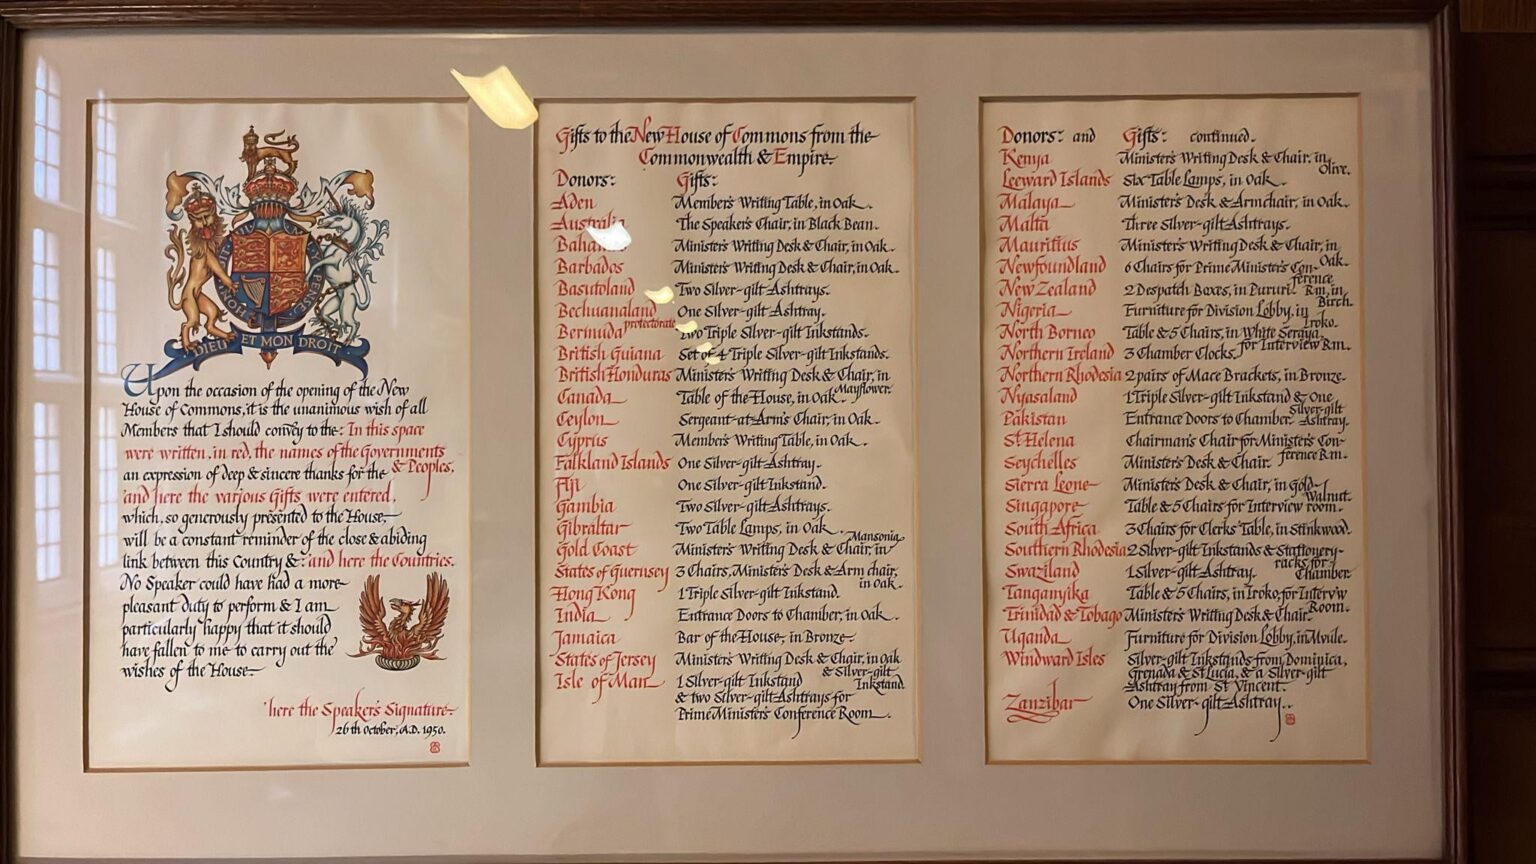 DIEU ET MON DROIT
Upon the occasion of the opening of the New
House of Commons, it is the unanimous wish of all
Members that I should convey to the: In this space
were written, in red, the names of the Governments
& Peoples,
an expression of deep & sincere thanks for the
and here the various Gifts were entered,
which, so generously presented to the House,
will be a constant reminder of the close & abiding
link between this Country &: and here the Countries.
No Speaker could have had a more
pleasant duty to perform & I am
particularly happy that it should
have fallen to me to carry out the
wishes of the House
here the Speaker's Signature
26th October, A.D. 1950.
Gifts to the New House of Commons from the
Commonwealth & Empire.
Donors: Gifts:
Aden Member's Writing Table, in Oak.
Australia The Speaker's Chair, in Black Bean.
Bahamas Minister's Writing Desk & Chair, in Oak.
Barbados Minister's Writing Desk & Chair, in Oak.
Basutoland Two Silver-gilt Ashtrays.
Bechuanaland One Silver-gilt Ashtray.
protectorate
Bermuda Two Triple Silver-gilt Inkstands.
British Guiana Set of 4 Triple Silver-gilt Inkstands.
British Honduras Minister's Writing Desk & Chair, in
Mayflower.
Canada Table of the House, in Oak
Ceylon Sergeant-at-Arm's Chair, in Oak.
Cyprus Member's Writing Table, in Oak.
Falkland Islands One Silver-gilt Ashtray.
Fiji One Silver-gilt Inkstand.
Gambia Two Silver-gilt Ashtrays.
Gibraltar Two Table Lamps, in Oak.
Gold Coast Minister's Writing Desk & Chair, in Mansonia
States of Guernsey 3 Chairs, Minister's Desk & Arm chair,
in Oak.
Hong Kong 1 Triple Silver-gilt Inkstand.
India Entrance Doors to Chamber, in Oak.
Jamaica Bar of the House, in Bronze.
States of Jersey Minister's Writing Desk & Chair, in Oak
& Silver-gilt
Inkstand.
Isle of Man 1 Silver-gilt Inkstand
& two Silver-gilt Ashtrays for
Prime Minister's Conference Room.
Donors: and Gifts: continued.
Kenya Minister's Writing Desk & Chair, in
Olive.
Leeward Islands Six Table Lamps, in Oak.
Malaya Minister's Desk & Armchair, in Oak.
Malta Three Silver-gilt Ashtrays.
Mauritius Minister's Writing Desk & Chair, in
Oak.
Newfoundland 6 Chairs for Prime Minister's Con-
ference
Rm, in
Birch.
New Zealand 2 Despatch Boxes, in Pururi.
Nigeria Furniture for Division Lobby, in
Iroko.
North Borneo Table & 5 Chairs, in White Seraya
for Interview Rm.
Northern Ireland 3 Chamber Clocks.
Northern Rhodesia 2 pairs of Mace Brackets, in Bronze.
Nyasaland 1 Triple Silver-gilt Inkstand & One
Silver-gilt
Ashtray.
Pakistan Entrance Doors to Chamber
St Helena Chairman's Chair for Minister's Con-
ference Rm.
Seychelles Minister's Desk & Chair.
Sierra Leone Minister's Desk & Chair, in Gold
Walnut.
Singapore Table & 5 Chairs for Interview room.
South Africa 3 Chairs for Clerks' Table, in Stinkwood.
Southern Rhodesia 2 Silver-gilt Inkstands & Stationery-
racks for
Chamber.
Swaziland 1 Silver-gilt Ashtray.
Tanganyika Table & 5 Chairs, in Iroko, for Interv'w
Room.
Trinidad & Tobago Minister's Writing Desk & Chair
Uganda Furniture for Division Lobby, in Mvule.
Windward Isles Silver-gilt Inkstands from Dominica,
Grenada & St Lucia, & a Silver-gilt
Ashtray from St Vincent.
Zanzibar One Silver-gilt Ashtray.